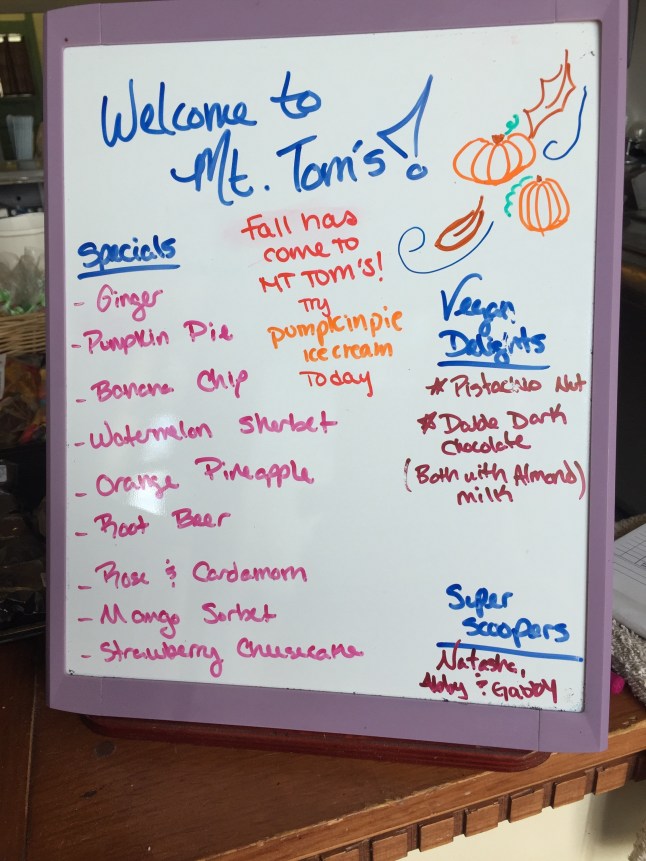 Welcome to
Mt. Tom's!
Specials
- Ginger
- Pumpkin Pie
- Banana Chip
- Watermelon Sherbet
- Orange Pineapple
- Root Beer
- Rose & Cardamom
- Mango Sorbet
- Strawberry Cheesecake
Fall has
come to
MT TOM'S!
Try
pumpkin pie
ice cream
Today
Vegan
Delights
* Pistachio Nut
* Double Dark
Chocolate
(Both with Almond)
milk
Super
Scoopers
Natasha,
Abby & Gabby